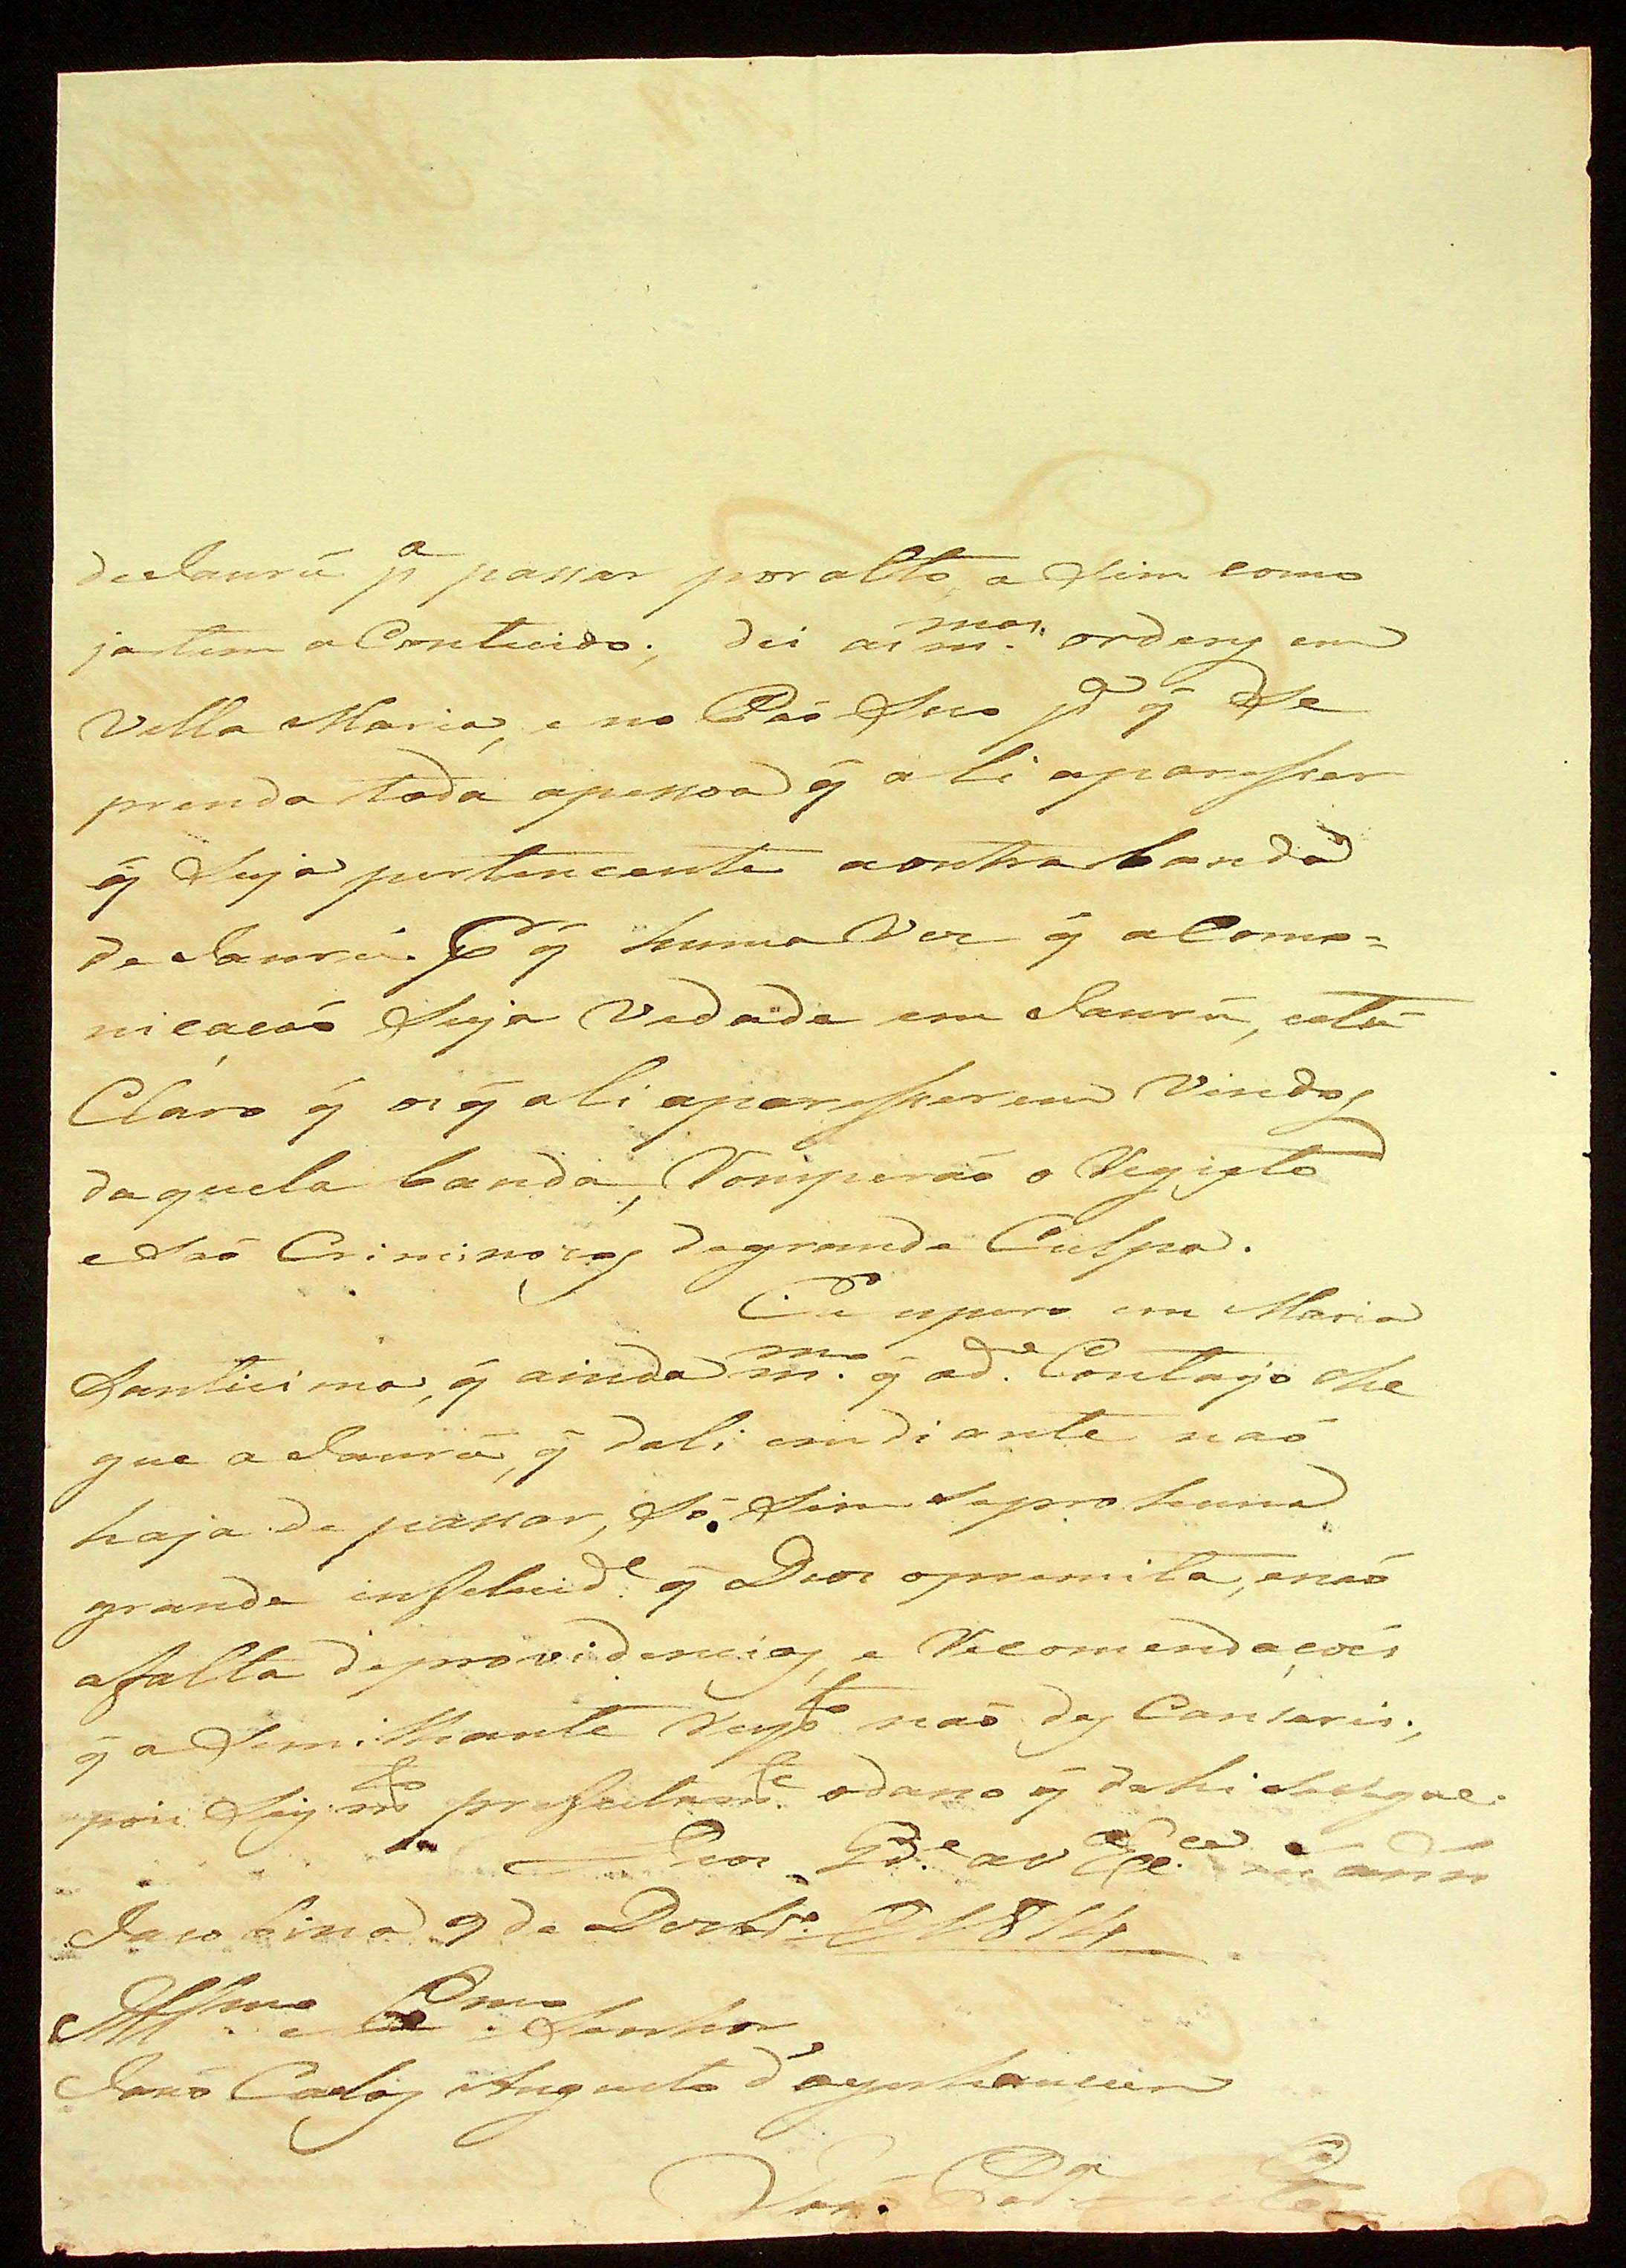 de Jaurú p.ª passar por alto, a Sim como
ja tem a Contecido; dei as m.mas ordens em
Villa Maria, e no Páo Seco p.ª q̃ Se
prenda toda apessoa q̃ ali aparesser
q̃ Seja pertencente aoutra banda
de Jaurú. Pr q̃ huma Ves q̃ a Como=
nicacaõ Seja Vedada em Jaurú, està
Claro q̃ os q̃ ali aparesserem Vindos
daquela banda, Romperaõ o Registo
e Saõ Criminozos degrande Culpa.
espero em Maria
Santicima, q̃ ainda m.mo q̃ ad.ª Contajo che
gue a Jaurú, q̃ dali emdiante naõ
haja de passar, Só Sim Se pro huma
grande infelicid.e q̃ Deos opremita, enaõ
afalta deprovidencias, e Recomendaçoés
q̃ a Semilhante Resp.to naõ des Cansarei,
pois Sey m.to prefeitam.te odano q̃ dahi Seségue.
Deos G.de a V Ex.cia m. ann.
Jacobina 9 de Dezbr.o D 1814
Ill.mo e Ex.mo Senhor
Joaõ Carlos Augusto d'oeynhausen